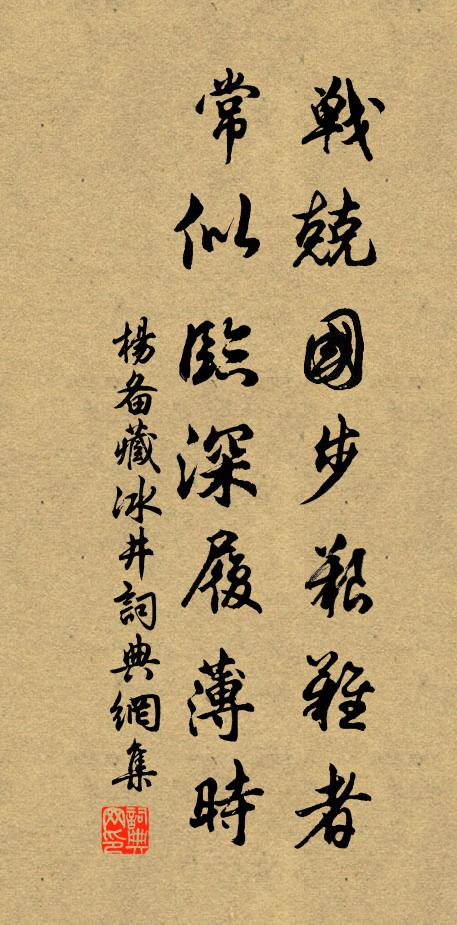 戰兢國步艱難者
常似臨深履薄時
楊备藏冰井詞典網集
詞典网印